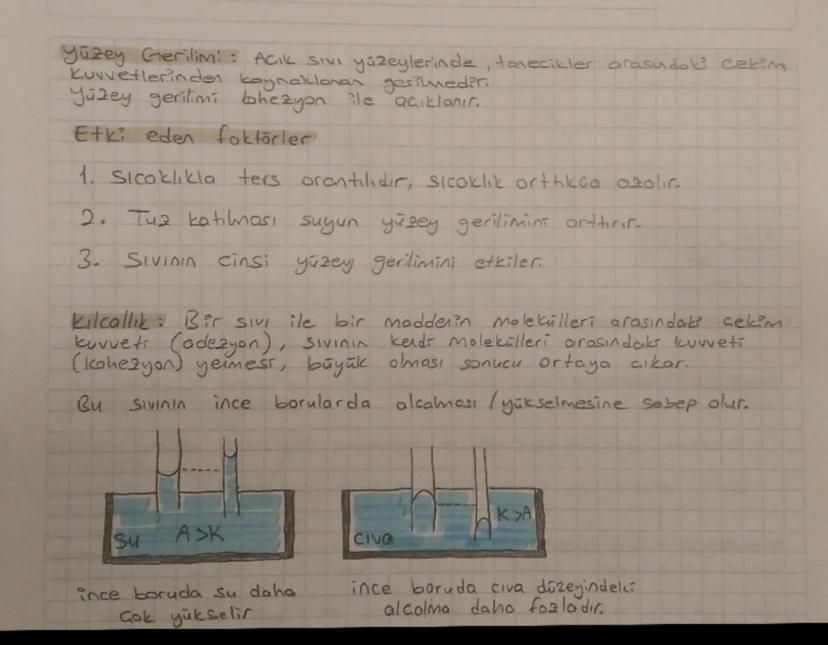 Yüzey Gerilimi: Açık sıvı yüzeylerinde, tanecikler arasındaki çekim
kuvvetlerinden kaynaklanan gerilmedir.
Yüzey gerilimi kohezyon ile açıklanır.
Etki eden faktörler
1. Sıcaklıkla ters orantılıdır, sıcaklık arttıkça azalır.
2. Tuz katılması suyun yüzey gerilimini arttırır.
3. Sıvının cinsi yüzey gerilimini etkiler.
Kılcallık: Bir sıvı ile bir maddenin molekülleri arasındaki çekim
kuvveti (adezyon), sıvının kendi molekülleri arasındaki kuvveti
(kohezyon) yenmesi, büyük olması sonucu ortaya çıkar.
Bu sıvının ince borularda alçalması / yükselmesine sebep olur.
Su A>K
civa K>A
ince boruda su daha
çok yükselir
ince boruda cıva düzeyindeki
alçalma daha fazladır.